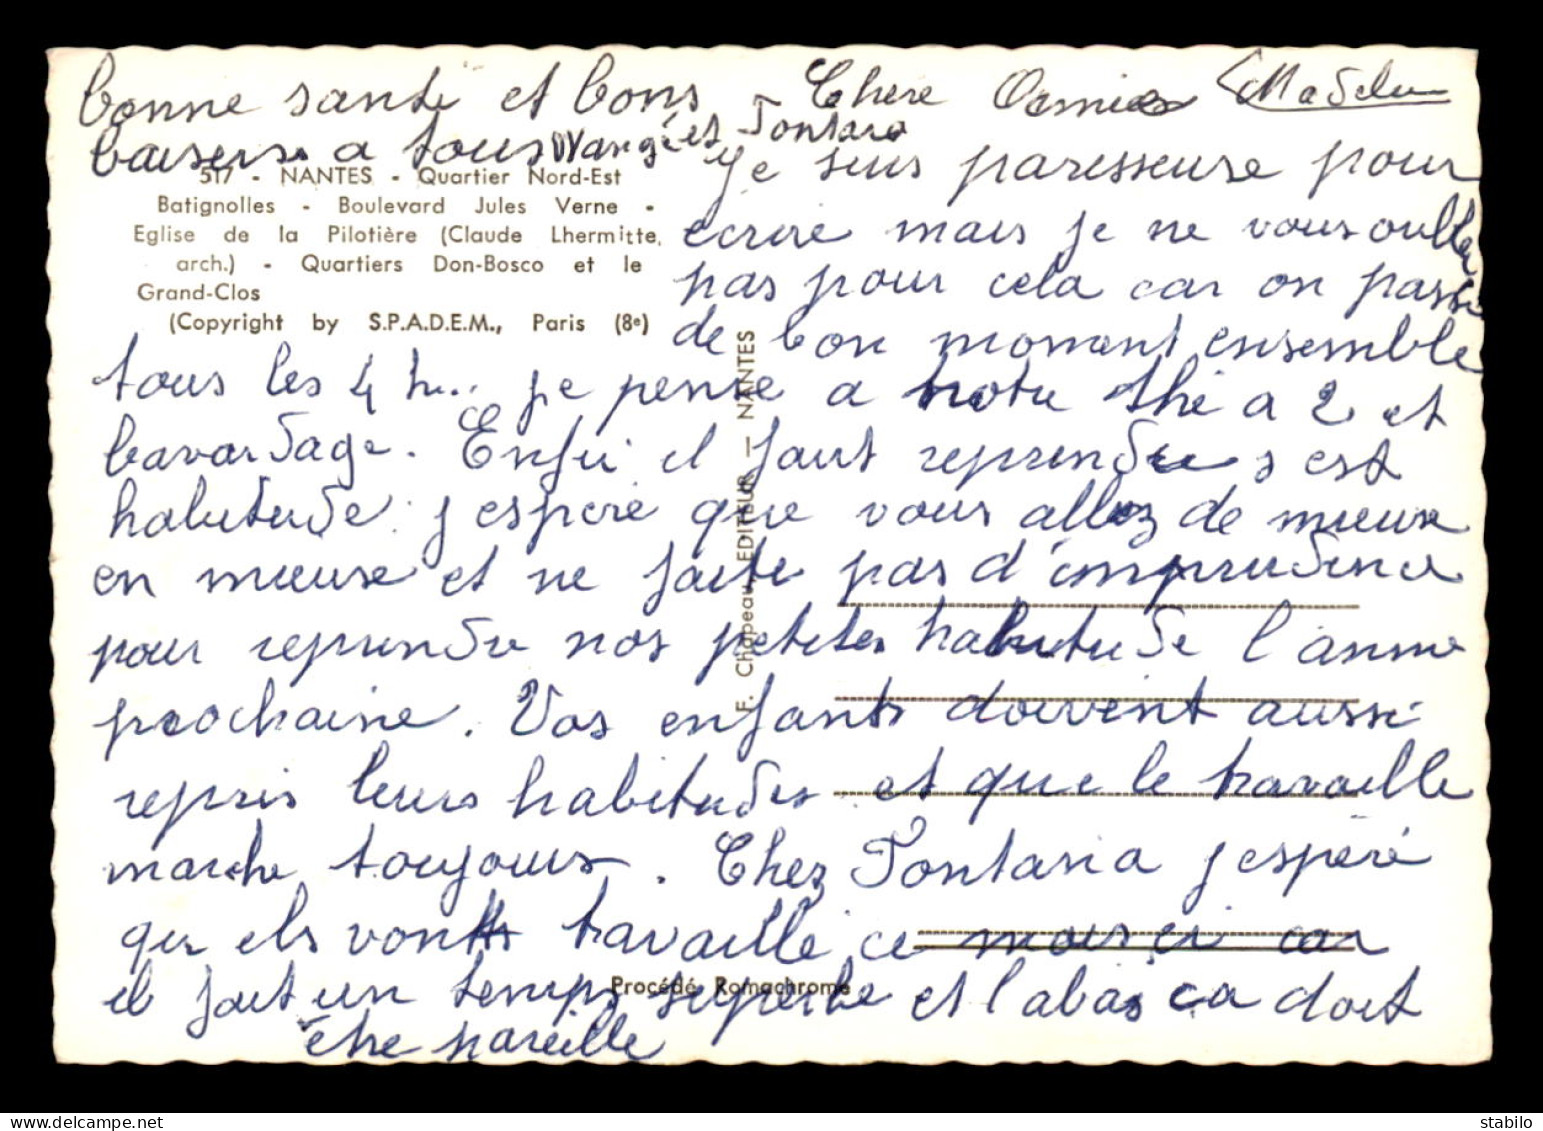 bonne sante et bons
baisers a tous
Chere Madeleine
517 - NANTES - Quartier Nord-Est
Batignolles - Boulevard Jules Verne -
Eglise de la Pilotière (Claude Lhermitte,
arch.) - Quartiers Don-Bosco et le
Grand-Clos
(Copyright by S.P.A.D.E.M., Paris (8e)
F. Chapeau, EDITEUR — NANTES
Je suis paresseuse pour
ecrire mais je ne vous oublie
pas pour cela car on passe
de bon moment ensemble
tous les 4 h... je pense a notre thé a 2 et
bavardage. Enfin il faut reprendre s est
habitude j espere que vous allez de mieux
en mieux et ne faite pas d'imprudence
pour reprendre nos petites habitude l'anne
prochaine. Vos enfants doivent aussi
repris leurs habitudes et que le travaille
marche toujours. Chez Fontana j espère
que ils vont travaille ce mois ci car
il fait un temps superbe et l'abas ca doit
être pareille
Procédé Romachrome
stabilo